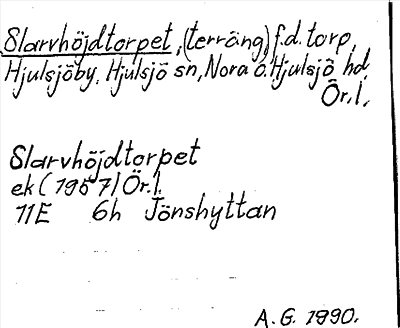 Slarvhöjdtorpet, (terräng) f.d. torp,
Hjulsjöby, Hjulsjö sn, Nora o. Hjulsjö hd
Ör. l.
Slarvhöjdtorpet
ek (1957) Ör. l.
11E 6h Jönshyttan
A. G. 1990.